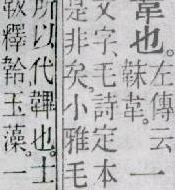 韋也。左傳云一
韎韋。
文字。毛詩定本
是非矣。小雅毛
所以代韠也。士
釋韐玉藻。一